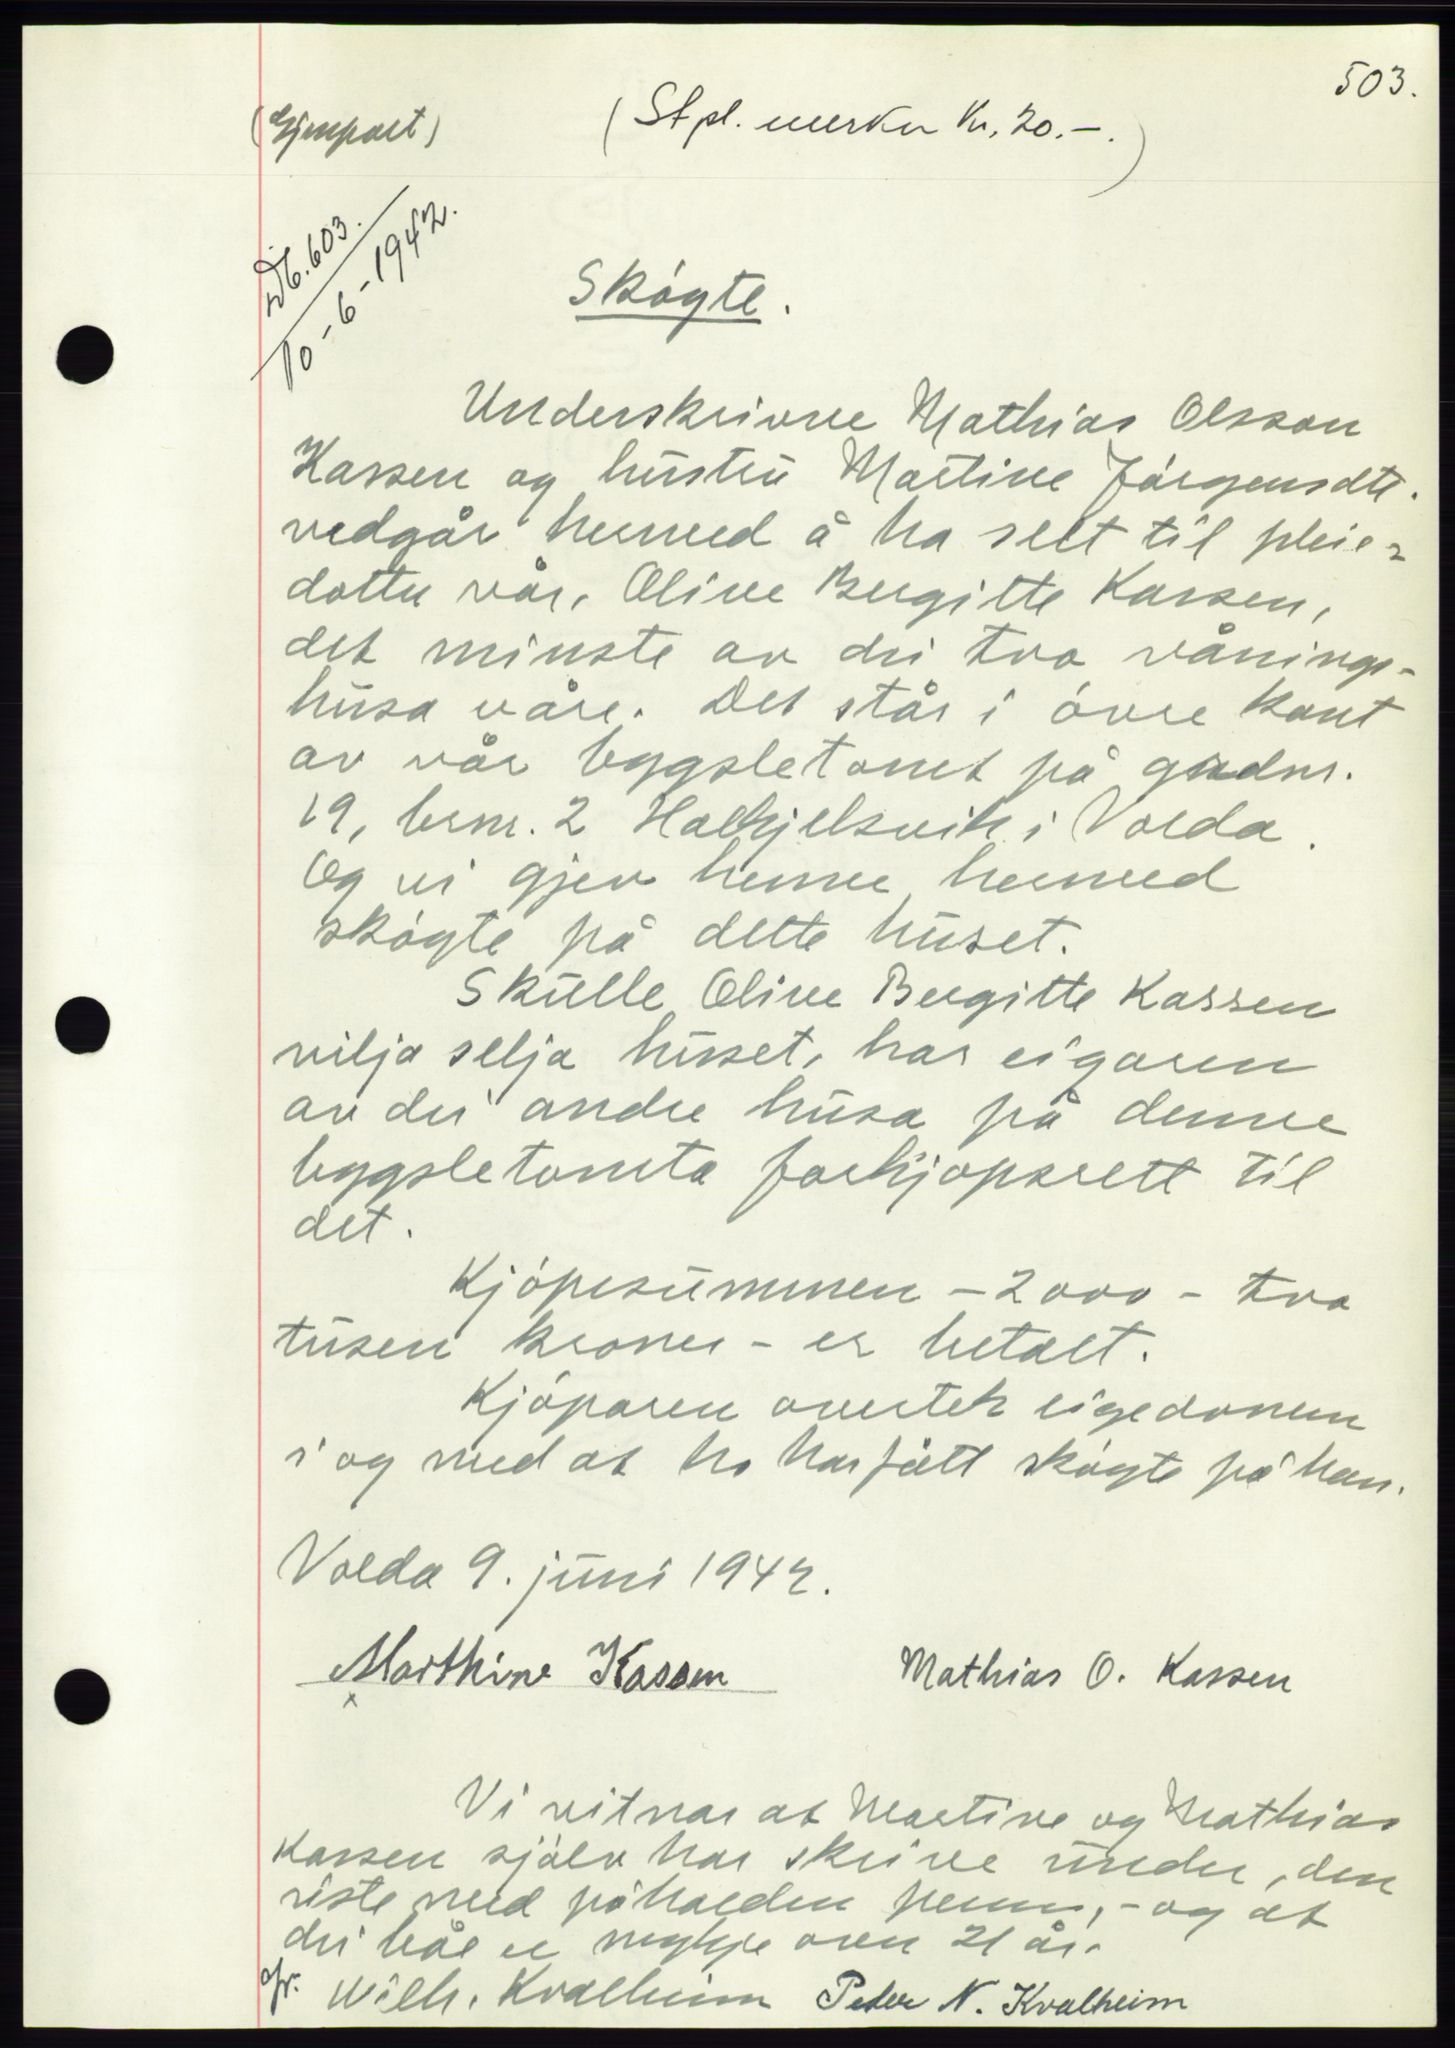 503.
(Gjenpart)
(Stpl. merker Kr. 20.-.)
Db. 603.
10-6-1942.
Skøgte.
Underskrivne Mathias Olsson
Kassen og hustru Martine Jørgensdtr.
vedgår hermed å ha selt til pleie-
dotter vår, Oline Bergitte Kassen,
det minste av dei two vånings-
husa våre. Det står i øvre kant
av vår bygsletomt på gardnr.
19, brnr. 2 Halkjelsvik i Volda.
Og vi gjev henne hermed
skøgte på dette huset.
Skulle Oline Bergitte Kassen
vilja selja huset, har eigaren
av dei andre husa på denne
bygsletomta forkjøpsrett til
det.
Kjøpesummen - 2000 - two
tusen kroner - er betalt.
Kjøparen overtek eigedomen
i og med at ho har fått skøgte på han.
Volda 9. juni 1942.
Marthine Kassen Mathias O. Kassen
x
Vi vitnar at Martine og Mathias
Kassen sjølv har skrive under, den
siste med påhalden penn, - og at
dei båe er myhje over 21 år.
Wilh. Kvalheim Peder N. Kvalheim